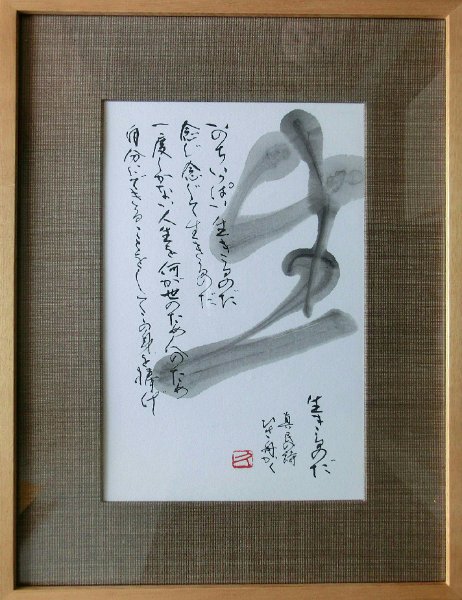 生
生きるのだ
真民の詩
いのちいっぱい生きるのだ
念じ念じて生きるのだ
一度しかない人生を何か世のため人のため
自分にできることをしてこの身を捧げ